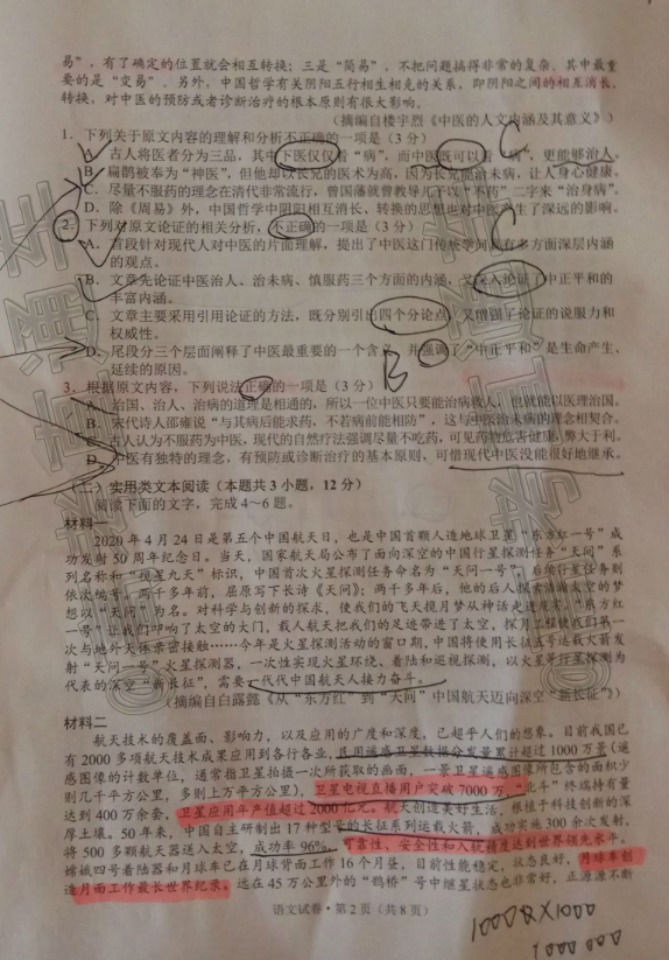 易”，有了确定的位置就会相互转换；三是“简易”，不把问题搞得非常的复杂。其中最重
要的是“交易”。另外，中国哲学有关阴阳五行相生相克的关系，即阴阳之间的相互消长、
转换，对中医的预防或者诊断治疗的根本原则有很大影响。
（摘编自楼宇烈《中医的人文内涵及其意义》）
1. 下列关于原文内容的理解和分析不正确的一项是（3分）
C
A. 古人将医者分为三品，其中下医仅仅看“病”，而中医既可以看“病”，更能够治人。
B. 扁鹊被奉为“神医”，但他却以长兄的医术为高，因为长兄能治未病，让人身心健康。
C. 尽量不服药的理念在清代非常流行，曾国藩就曾教导儿子以“不药”二字来“治身病”。
D. 除《周易》外，中国哲学中阴阳相互消长、转换的思想也对中医产生了深远的影响。
2. 下列对原文论证的相关分析，不正确的一项是（3分）
C
A. 首段针对现代人对中医的片面理解，提出了中医这门传统学问具有多方面深层内涵
的观点。
B. 文章先论证中医治人、治未病、慎服药三个方面的内涵，又深入论证了中正平和的
丰富内涵。
C. 文章主要采用引用论证的方法，既分别引出四个分论点，又增强了论证的说服力和
权威性。
D. 尾段分三个层面阐释了中医最重要的一个含义，并强调了“中正平和”是生命产生、
延续的原因。
B
3. 根据原文内容，下列说法正确的一项是（3分）
A. 治国、治人、治病的道理是相通的，所以一位中医只要能治病救人，也就能以医理治国。
B. 宋代诗人邵雍说“与其病后能求药，不若病前能相防”，这与中医治未病的理念相契合。
C. 古人认为不服药为中医，现代的自然疗法强调尽量不吃药，可见药物危害健康，弊大于利。
D. 中医有独特的理念，有预防或诊断治疗的基本原则，可惜现代中医没能很好地继承。
（二）实用类文本阅读（本题共3小题，12分）
阅读下面的文字，完成4～6题。
材料一
2020年4月24日是第五个中国航天日，也是中国首颗人造地球卫星“东方红一号”成
功发射50周年纪念日。当天，国家航天局公布了面向深空的中国行星探测任务“天问”系
列名称和“揽星九天”标识，中国首次火星探测任务命名为“天问一号”，后续行星任务则
依次编号。两千多年前，屈原写下长诗《天问》；两千多年后，他的后人探索浩瀚太空的梦
想以“天问”为名。对科学与创新的探求，使我们的飞天揽月梦从神话走进现实。“东方红
一号”让我们叩响了太空的大门，载人航天把我们的足迹带进了太空，探月工程使我们第一
次与地外天体亲密接触……今年是火星探测活动的窗口期，中国将使用长征五号运载火箭发
射“天问一号”火星探测器，一次性实现火星环绕、着陆和巡视探测，以火星等行星探测为
代表的深空“新长征”，需要一代代中国航天人接力奋斗。
（摘编自白露懿《从“东方红”到“天问”中国航天迈向深空“新长征”》）
材料二
航天技术的覆盖面、影响力，以及应用的广度和深度，已超乎人们的想象。目前我国已
有2000多项航天技术成果应用到各行各业，民用遥感卫星数据分发量累计超过1000万景（遥
感图像的计数单位，通常指卫星拍摄一次所获取的画面，一景卫星遥感图像所包含的面积少
则几千平方公里，多则上万平方公里），卫星电视直播用户突破7000万，“北斗”终端持有量
达到400万余套，卫星应用年产值超过2000亿元。航天创造美好生活，根植于科技创新的深
厚土壤。50年来，中国自主研制出17种型号的长征系列运载火箭，成功实施300余次发射，
将500多颗航天器送入太空，成功率96%，可靠性、安全性和入轨精度达到世界领先水平。
嫦娥四号着陆器和月球车已在月球背面工作16个月昼，目前性能稳定，状态良好，月球车创
造月面工作最长世界纪录。远在45万公里外的“鹊桥”号中继星状态也非常好，正源源不断
语文试卷·第2页（共8页）